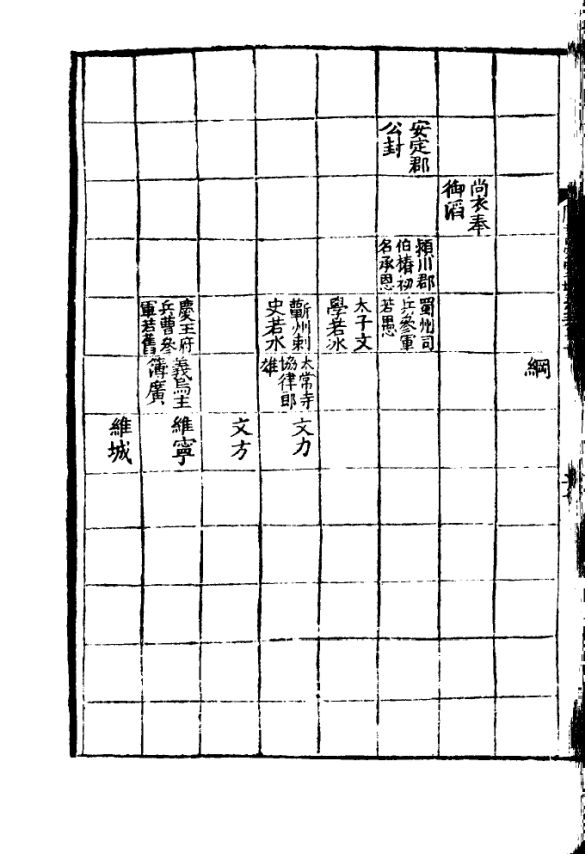 綱
尚衣奉
御滔
安定郡
公封
潁川郡
伯椿初
名承恩
蜀州司
兵參軍
若愚
太子文
學若冰
蘄州刺
史若水
太常寺
協律郎
雄
文力
文方
慶王府
兵曹參
軍若舊
義烏主
簿廣
維寧
維城